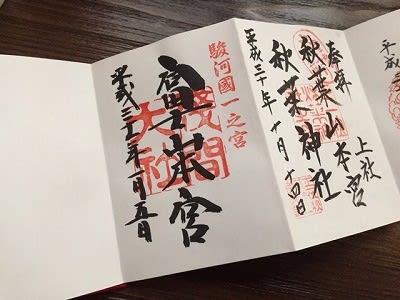 平成
奉拝
上社
秋葉山本宮
秋葉神社
平成三十年十月十四日
駿河國一之宮
富士山本宮
淺間
大社
平成三十一年一月五日